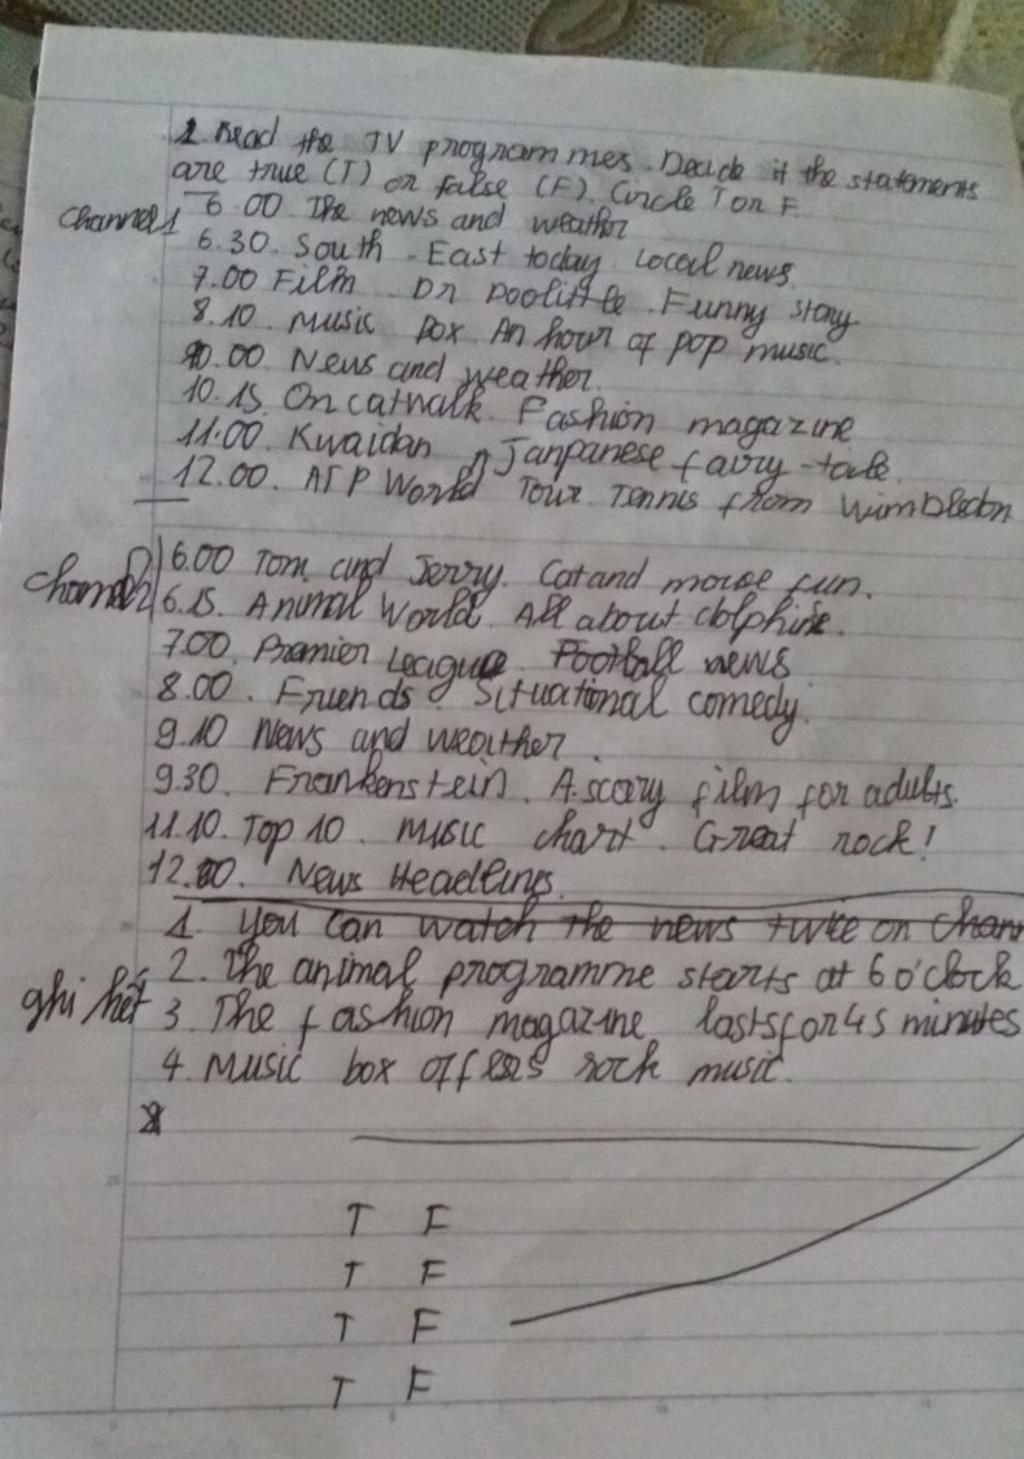 1. Read the TV programmes. Decide if the statements
are true (T) or false (F). Circle T or F.
Channel 1 6.00 The news and weather
6.30. South - East today. Local news.
7.00 Film Dr Doolittle. Funny story
8.10. Music Box. An hour of pop music.
10.00. News and weather.
10.15. On catwalk. Fashion magazine
11.00. Kwaidan Janpanese fairy-tale.
12.00. ATP World Tour. Tennis from Wimbledon
Channel 2 6.00 Tom and Jerry. Cat and mouse fun.
6.15. Animal World. All about dolphins.
7.00. Premier League. Football news
8.00. Friends. Situational comedy.
9.10 News and weather.
9.30. Frankenstein. A scary film for adults.
11.10. Top 10. Music chart. Great rock!
12.00. News Headlines.
1. You can watch the news twice on Chann
2. The animal programme starts at 6 o'clock
ghi hết 3. The fashion magazine lasts for 45 minutes
4. Music box offers rock music.
2
T F
T F
T F
T F